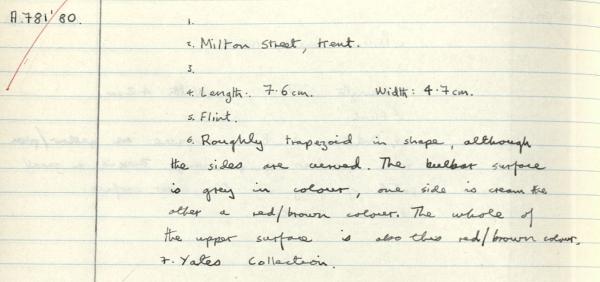 A.781'80.
1.
2. Milton Street, Kent.
3.
4. Length: 7.6cm. Width: 4.7cm.
5. Flint.
6. Roughly trapezoid in shape, although
the sides are curved. The bulbar surface
is grey in colour, one side is cream the
other a red/brown colour. The whole of
the upper surface is also this red/brown colour.
7. Yates Collection.